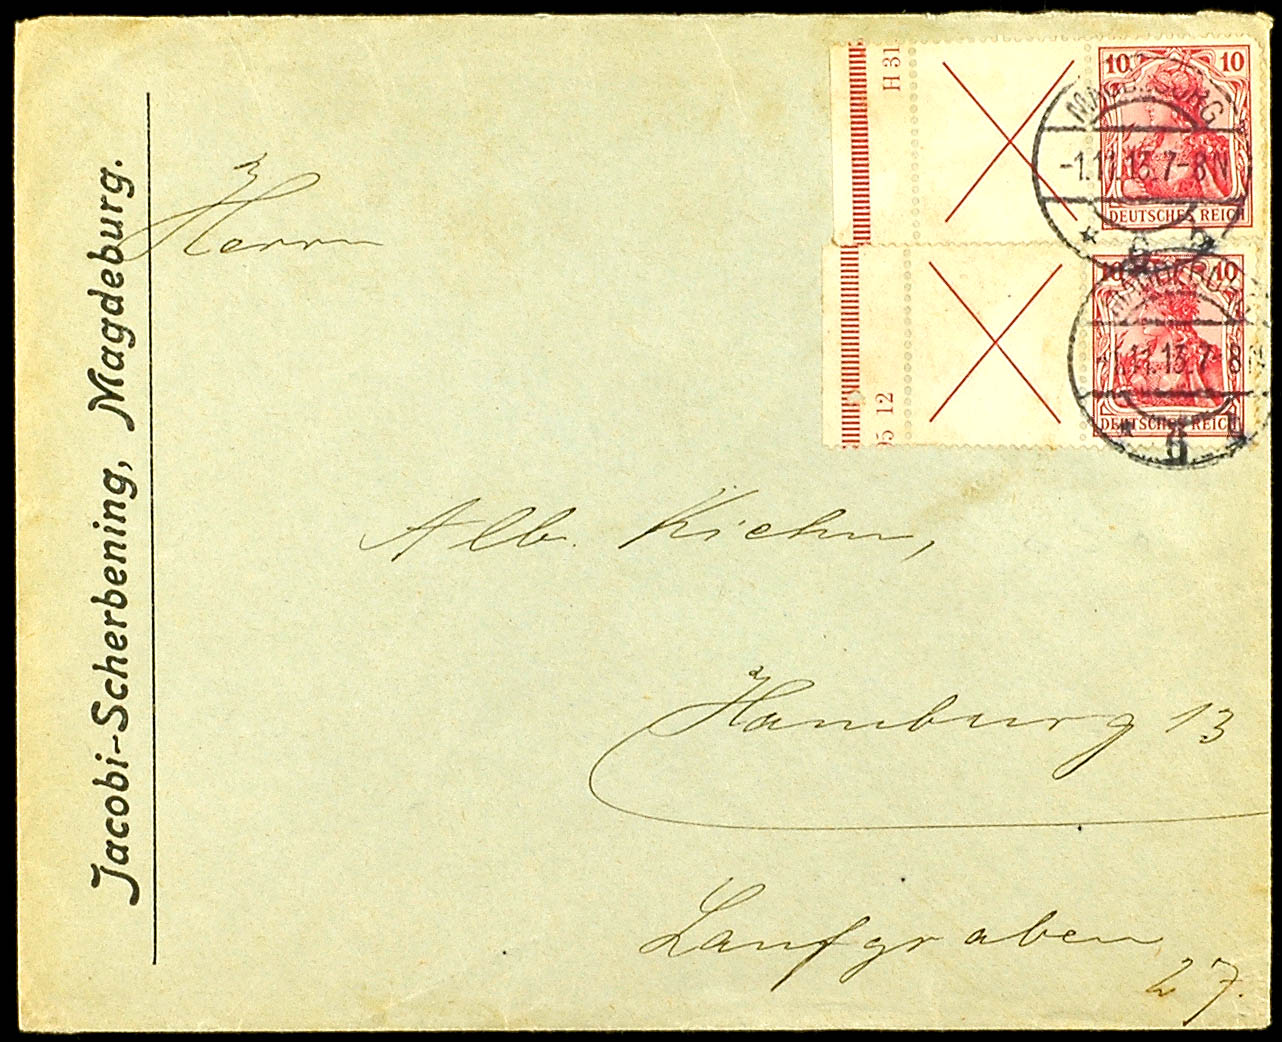 Jacobi-Scherbening, Magdeburg.
H 31
10 10
MAGDEBURG
-1.11.13.7-8N
DEUTSCHES REICH
10 10
MAGDEBURG
-1.11.13.7-8N
DEUTSCHES REICH
95 12
* 6
Herrn
Alb. Kiehn,
Hamburg 13
Laufgraben
27.